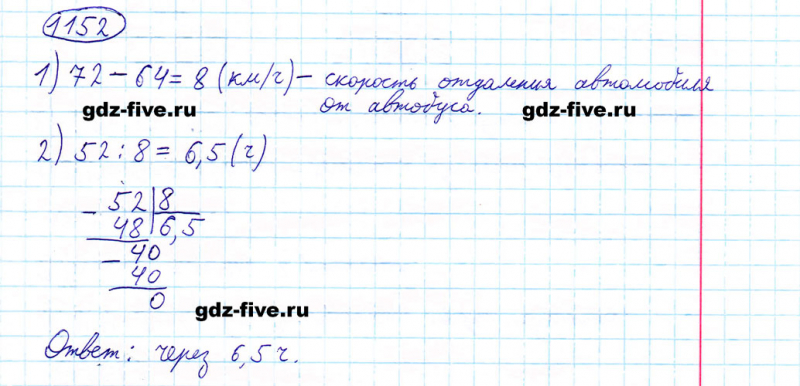 1152
1) 72 - 64 = 8 (км/ч) - скорость отдаления автомобиля
от автобуса.
gdz-five.ru gdz-five.ru
2) 52 : 8 = 6,5 (ч)
- 52 | 8
48 | 6,5
- 40
40
0
gdz-five.ru
Ответ: через 6,5 ч.